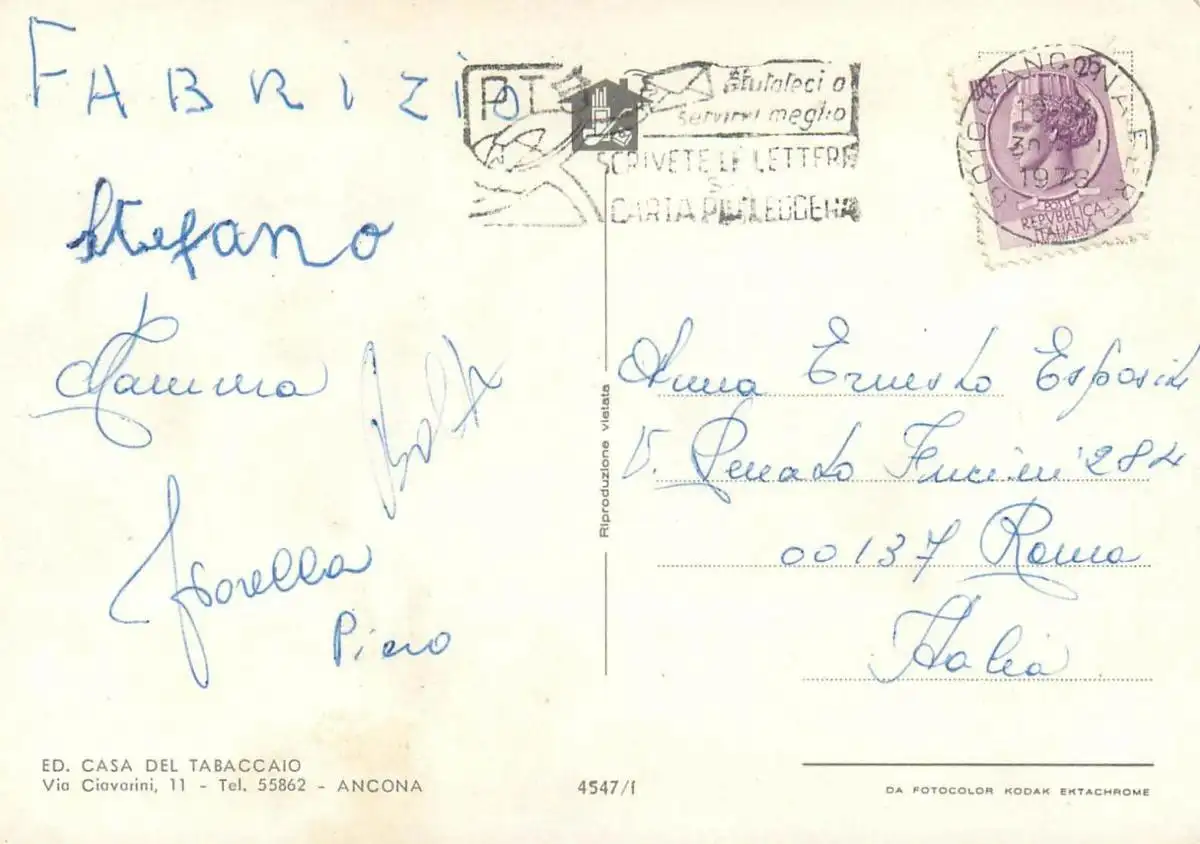 FABRIZIO
Stefano
Mamma
Fiorella
Piero
ED. CASA DEL TABACCAIO
Via Ciavarini, 11 - Tel. 55862 - ANCONA
4547/f
Riproduzione vietata
PT
aiutateci a
servirvi meglio
SCRIVETE LE LETTERE
SU
CARTA PIU LEGGERA
ANCONA
1973
LIRE
POSTE
REPVBBLICA
ITALIANA
Anna Ernesto Esposito
V. Renato Fucini 284
00137 Roma
Italia
DA FOTOCOLOR KODAK EKTACHROME